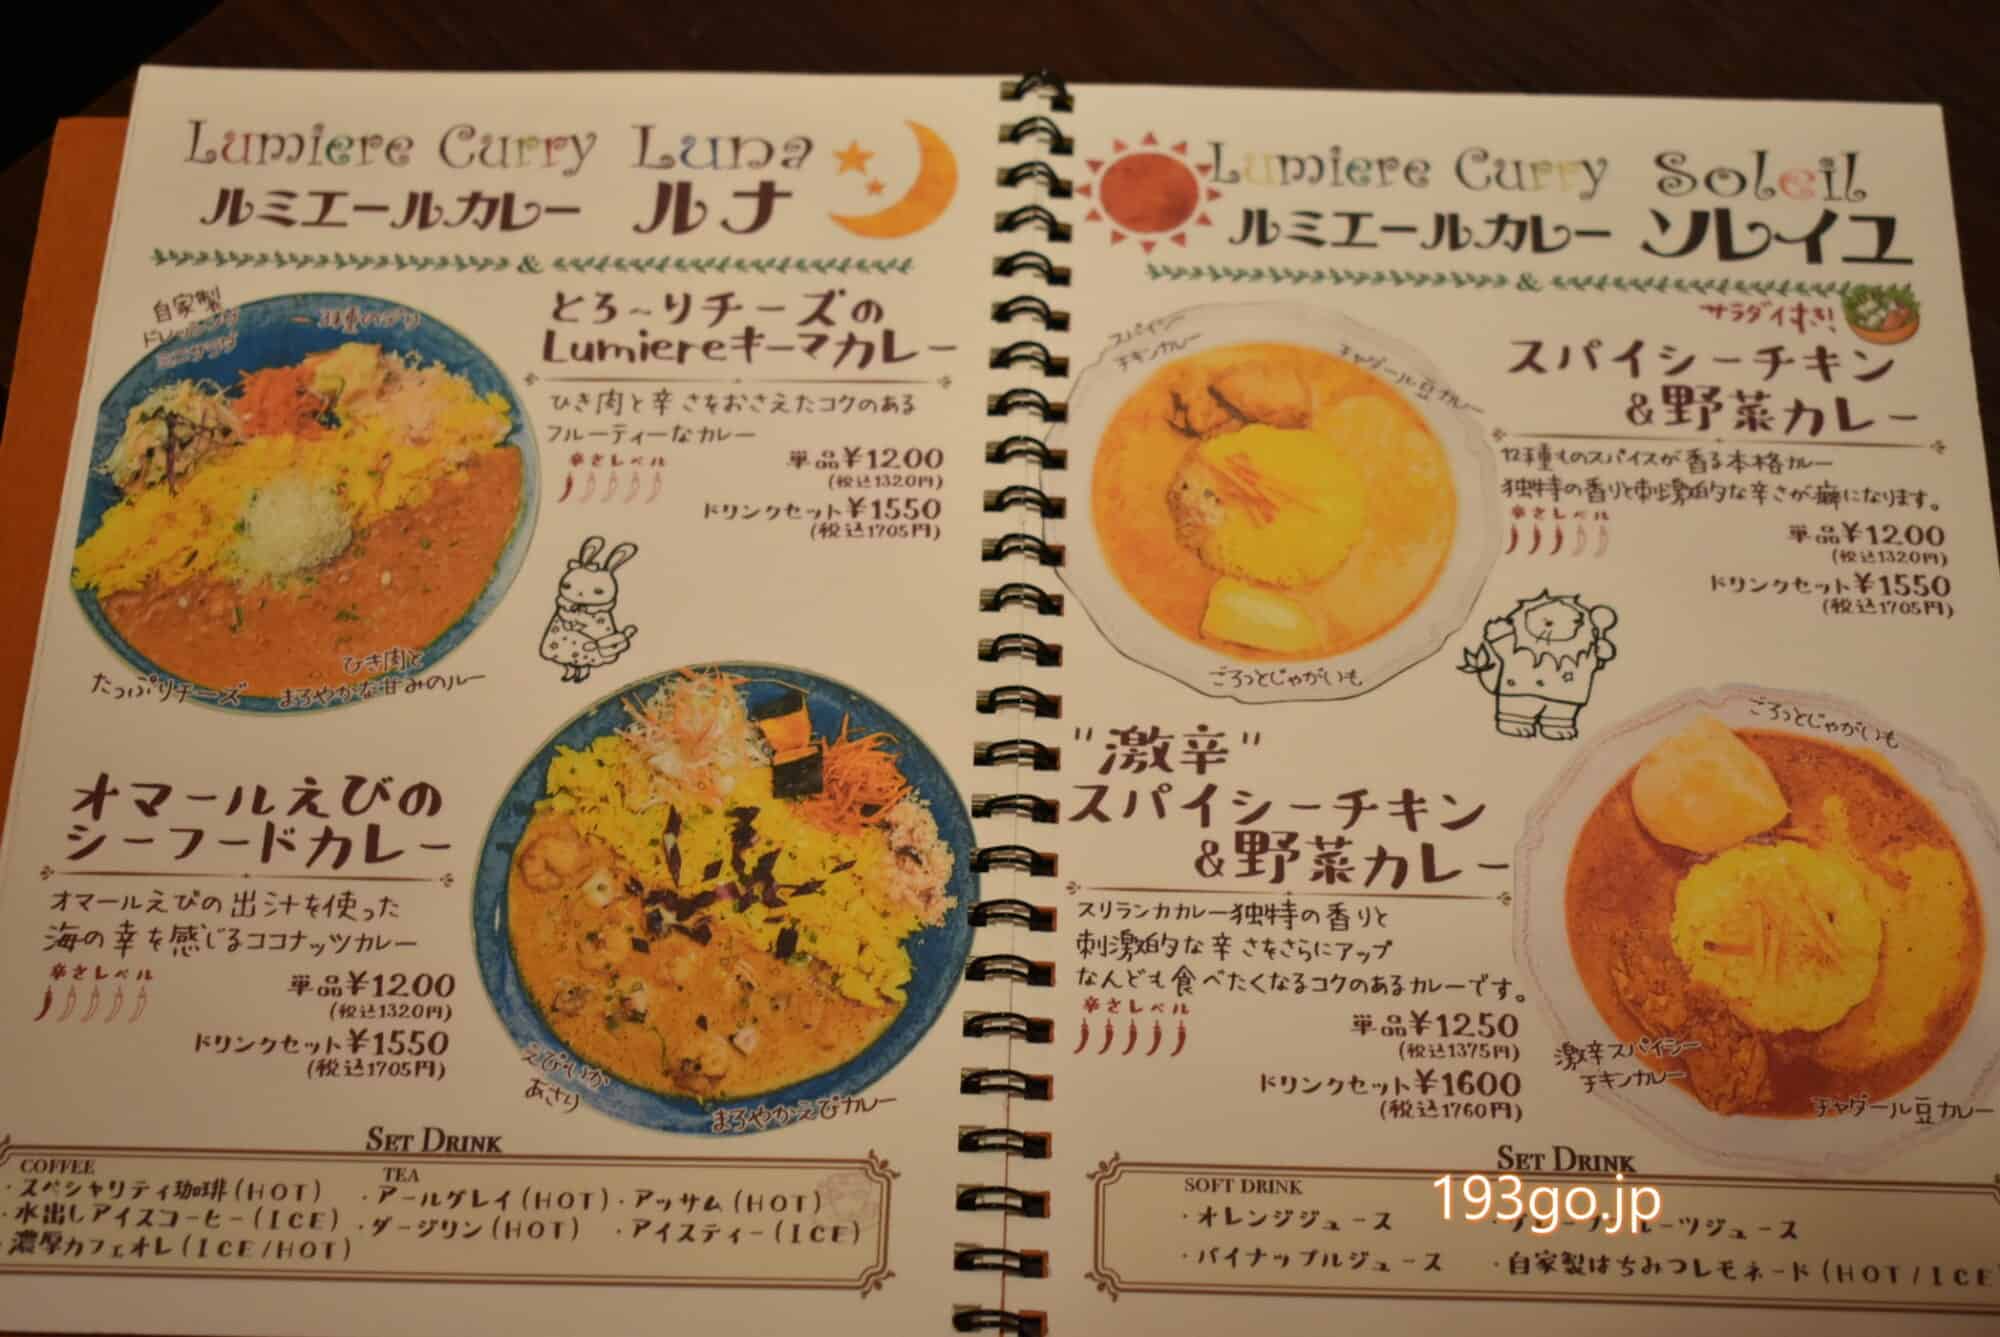 Lumiere Curry Luna
ルミエールカレー ルナ
&
自家製
ドレッシング
ミニサラダ
とろ~りチーズの
Lumiereキーマカレー
ひき肉と辛さをおさえたコクのある
フルーティーなカレー
辛さレベル
単品¥1200
(税込1320円)
ドリンクセット¥1550
(税込1705円)
たっぷりチーズ
ひき肉と
まろやかな甘みのルー
オマールえびの
シーフードカレー
オマールえびの出汁を使った
海の幸を感じるココナッツカレー
辛さレベル
単品¥1200
(税込1320円)
ドリンクセット¥1550
(税込1705円)
えび・いか
あさり
まろやかえびカレー
SET DRINK
COFFEE
・スペシャリティ珈琲(HOT)
・水出しアイスコーヒー(ICE)
・濃厚カフェオレ(ICE/HOT)
TEA
・アールグレイ(HOT)・アッサム(HOT)
・ダージリン(HOT) ・アイスティー(ICE)
Lumiere Curry Soleil
ルミエールカレー ソレイユ
&
サラダ付き!
スパイシー
チキンカレー
チャダール豆カレー
ごろっとじゃがいも
スパイシーチキン
&野菜カレー
12種ものスパイスが香る本格カレー
独特の香りと刺激的な辛さが癖になります。
辛さレベル
単品¥1200
(税込1320円)
ドリンクセット¥1550
(税込1705円)
"激辛"
スパイシーチキン
&野菜カレー
スリランカカレー独特の香りと
刺激的な辛さをさらにアップ
なんども食べたくなるコクのあるカレーです。
辛さレベル
単品¥1250
(税込1375円)
ドリンクセット¥1600
(税込1760円)
ごろっとじゃがいも
激辛スパイシー
チキンカレー
チャダール豆カレー
SET DRINK
SOFT DRINK
・オレンジジュース
・パイナップルジュース
ーツジュース
・自家製はちみつレモネード(HOT/ICE
193go.jp